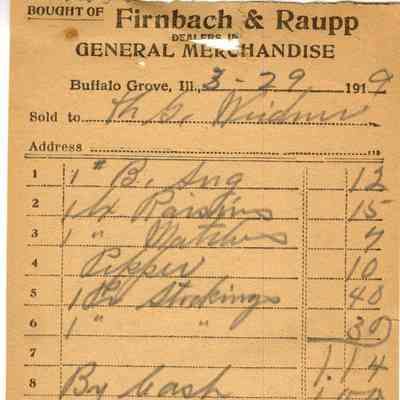 BOUGHT OF Firnbach & Raupp
DEALERS IN
GENERAL MERCHANDISE
Buffalo Grove, Ill., 3-29 1919
Sold to Th. G. Weidner
Address
1 1 # B. Sug 12
2 1 Lb Raisins 15
3 1 " Matches 7
4 Pepper 10
5 1 Pr Stockings 40
6 1 " " 30
7 1.14
8 By Cash